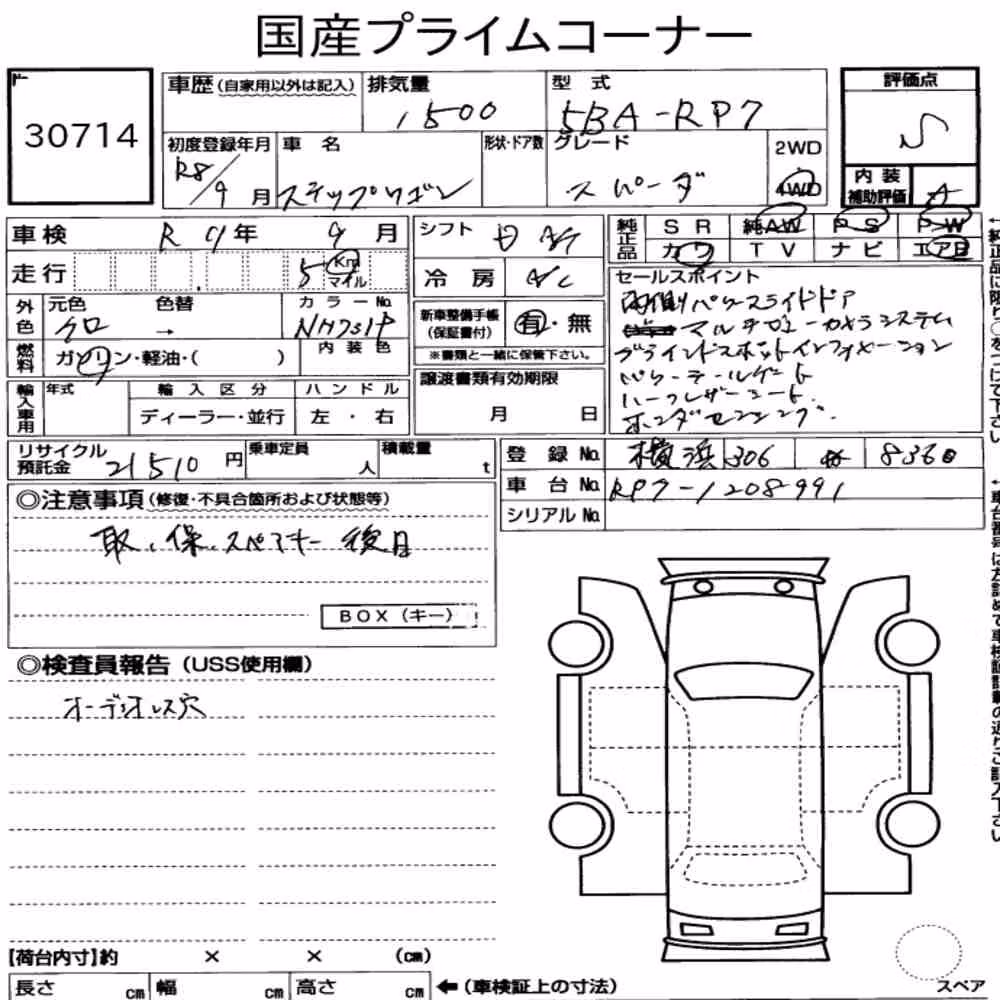 国産プライムコーナー
30714
車歴(自家用以外は記入)
排気量
1500
型式
5BA-RP7
評価点
S
初度登録年月
R8/9月
車名
ステップワゴン
形状・ドア数
グレード
スパーダ
2WD
4WD
内装補助評価
A
車検
R11年9月
シフト
冷房
A/C
純正品
SR 純AW PS PW
カワ TV ナビ エアB
走行
5 Km マイル
セールスポイント
両側パワースライドドア
マルチビューカメラシステム
ブラインドスポットインフォメーション
パワーテールゲート
ハーフレザーシート
ホンダセンシング
外色
元色
クロ
色替
→
カラーNo.
NH731P
内装色
新車整備手帳(保証書付)
有・無
※書類と一緒に保管下さい。
燃料
ガソリン・軽油・( )
譲渡書類有効期限
月 日
輸入車用
年式
輸入区分
ディーラー・並行
ハンドル
左・右
リサイクル預託金
21510円
乗車定員
人
積載量
t
登録No.
横浜 306 8360
車台No.
RP7-1208991
シリアルNo.
◎注意事項(修復・不具合箇所および状態等)
取、保、スペアキー 後日
BOX(キー)
◎検査員報告(USS使用欄)
オーディオレス穴
【荷台内寸】約 × × (cm)
長さ cm 幅 cm 高さ cm ←(車検証上の寸法)
スペア